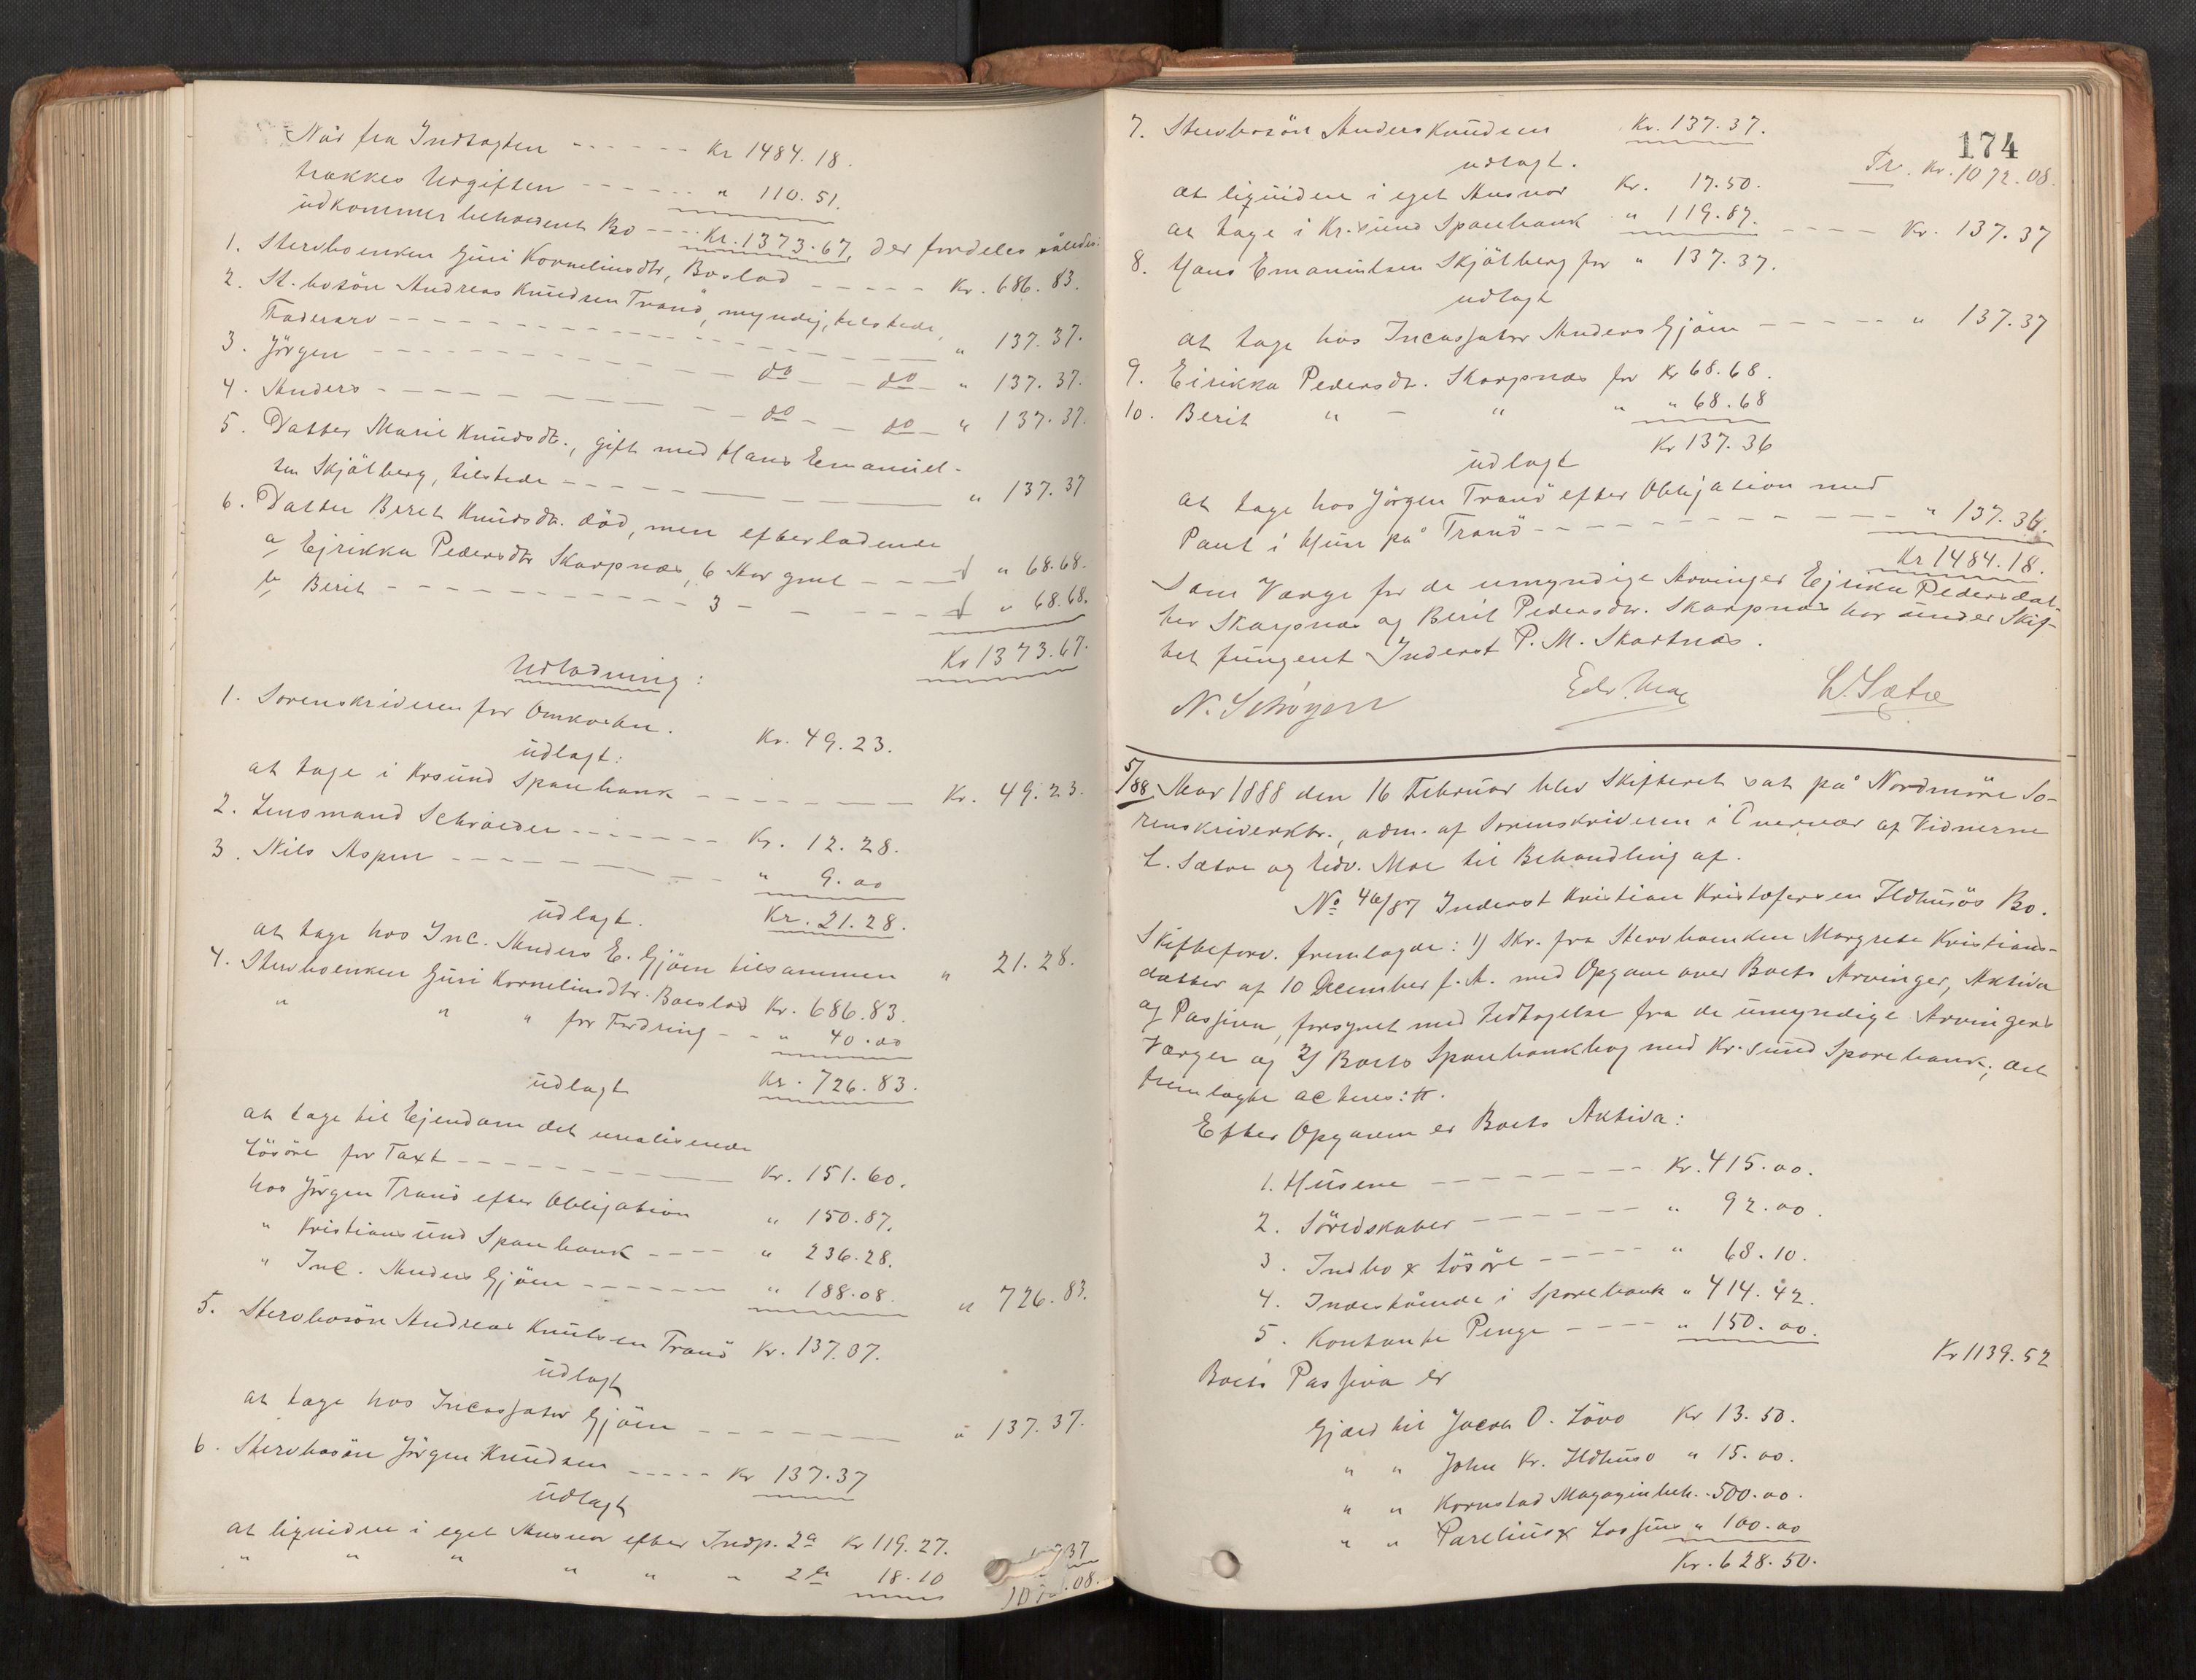 Når fra Indtægten - - - - - - Kr 1484.18.
trækkes Udgiften - - - - - - " 110.51.
udkommer beholdent Bo - - - Kr. 1373.67, der fordeles således:
1. Stervboenken Guri Kornelinsdtr, Boslad - - - - - Kr. 686.83.
2. St.bosön Andreas Knudsen Tranö, myndig, tilstede,
Faderarv - - - - - - " 137.37.
3. Jörgen - - - - - do - - do - " 137.37.
4. Anders - - - - - do - - do - " 137.37.
5. Datter Marit Knudsdtr., gift med Hans Emanuel-
sen Skjölberg, tilstede - - - - - " 137.37
6. Datter Berit Knudsdtr. död, men efterladende
a, Ejrikka Pedersdtr Skarpnæs, 6 Aar gml - - - " 68.68.
b, Berit - - - - - - 3 - - - - - " 68.68.
Kr 1373.67.
Udlodning:
1. Sorenskriveren for Omkostn. Kr. 49.23.
udlagt:
at tage i Krsund Sparebank - - - - - - Kr. 49.23.
2. Lensmand Schrøder - - - - - - Kr. 12.28.
3. Nils Aspen - - - - - - " 9.00
udlagt. Kr. 21.28.
at tage hos Inc. Anders E. Gjöen tilsammen " 21.28.
4. Stervboenken Guri Kornelinsdtr. Boeslad Kr. 686.83.
" " " for Fordring - - " 40.00
udlagt Kr. 726.83.
at tage til Ejendom det urealiserede
Lösöre for Taxt - - - - - - Kr. 151.60.
hos Jörgen Tranö efter Obligation " 150.87.
" Kristiansund Sparebank - - - - " 236.28.
" Inc. Anders Gjöen - - - - - - " 188.08. " 726.83.
5. Stervbosön Andreas Knudsen Tranö Kr. 137.37.
udlagt
at tage hos Incassator Gjöen - - - - - - " 137.37.
6. Stervbosön Jörgen Knudsen - - - - - Kr 137.37
udlagt
at liquidere i eget Ansvar efter Indp. 2a Kr 119.27.
" " " " " " 2b 18.10
174
7. Stervbosön Anders Knudsen Kr. 137.37.
udlagt. Tr. Kr. 1072.08.
at liquidere i eget Ansvar Kr. 17.50.
at tage i Kr.sund Sparebank " 119.87. - - - - Kr. 137.37
8. Hans Emanuelsen Skjölberg for " 137.37.
udlagt
at tage hos Incassator Anders Gjöen - - - - - " 137.37
9. Eirikka Pedersdtr. Skarpnæs for Kr 68.68.
10. Berit " - " " " 68.68
udlagt Kr 137.36
at tage hos Jörgen Tranö efter Obligation med
Pant i Huse på Tranö - - - - - - " 137.36.
Kr 1484.18.
Som Værge for de umyndige Arvinger Ejrikka Pedersdat-
ter Skarpnæs og Berit Pedersdtr. Skarpnæs har under Skif-
tet fungeret Inderst P. M. Skartnæs.
N. Schøyen Edv. Moe L. Sætre
5/88. Aar 1888 den 16 Februar blev Skifteret sat på Nordmöre So-
renskriverktr., adm. af Sorenskriveren i Overvær af Vidnerne
L. Sætre og Edv. Moe til Behandling af.
No 46/87 Inderst Kristian Kristofersen Ildhusös Bo.
Skifteforv. fremlagde: 1) Skr. fra Stervboenken Margrete Kristians-
datter af 10 December f. A. med Opgave over Boets Arvinger, Aktiva
og Passiva, forsynet med Vedtagelse fra de umyndige Arvingers
Værger og 2) Boets Sparebankbog med Kr.sund Sparebank, det
fremlagte acteres: #.
Efter Opgaven er Boets Aktiva:
1. Husene - - - - - - Kr. 415.00.
2. Söredskaber - - - - - - " 92.00.
3. Indbo & Lösöre - - - - - " 68.10.
4. Indestående i Sparebank " 414.42.
5. Kontante Penge - - - - " 150.00.
Kr 1139.52
Boets Passiva er
Gjæld til Jacob O. Lövö Kr 13.50.
" " John Kr. Ildhusö " 15.00.
" " Kornstad Magazinbeh. - 500.00.
" " Parelius & Lossius " 100.00
Kr. 628.50.